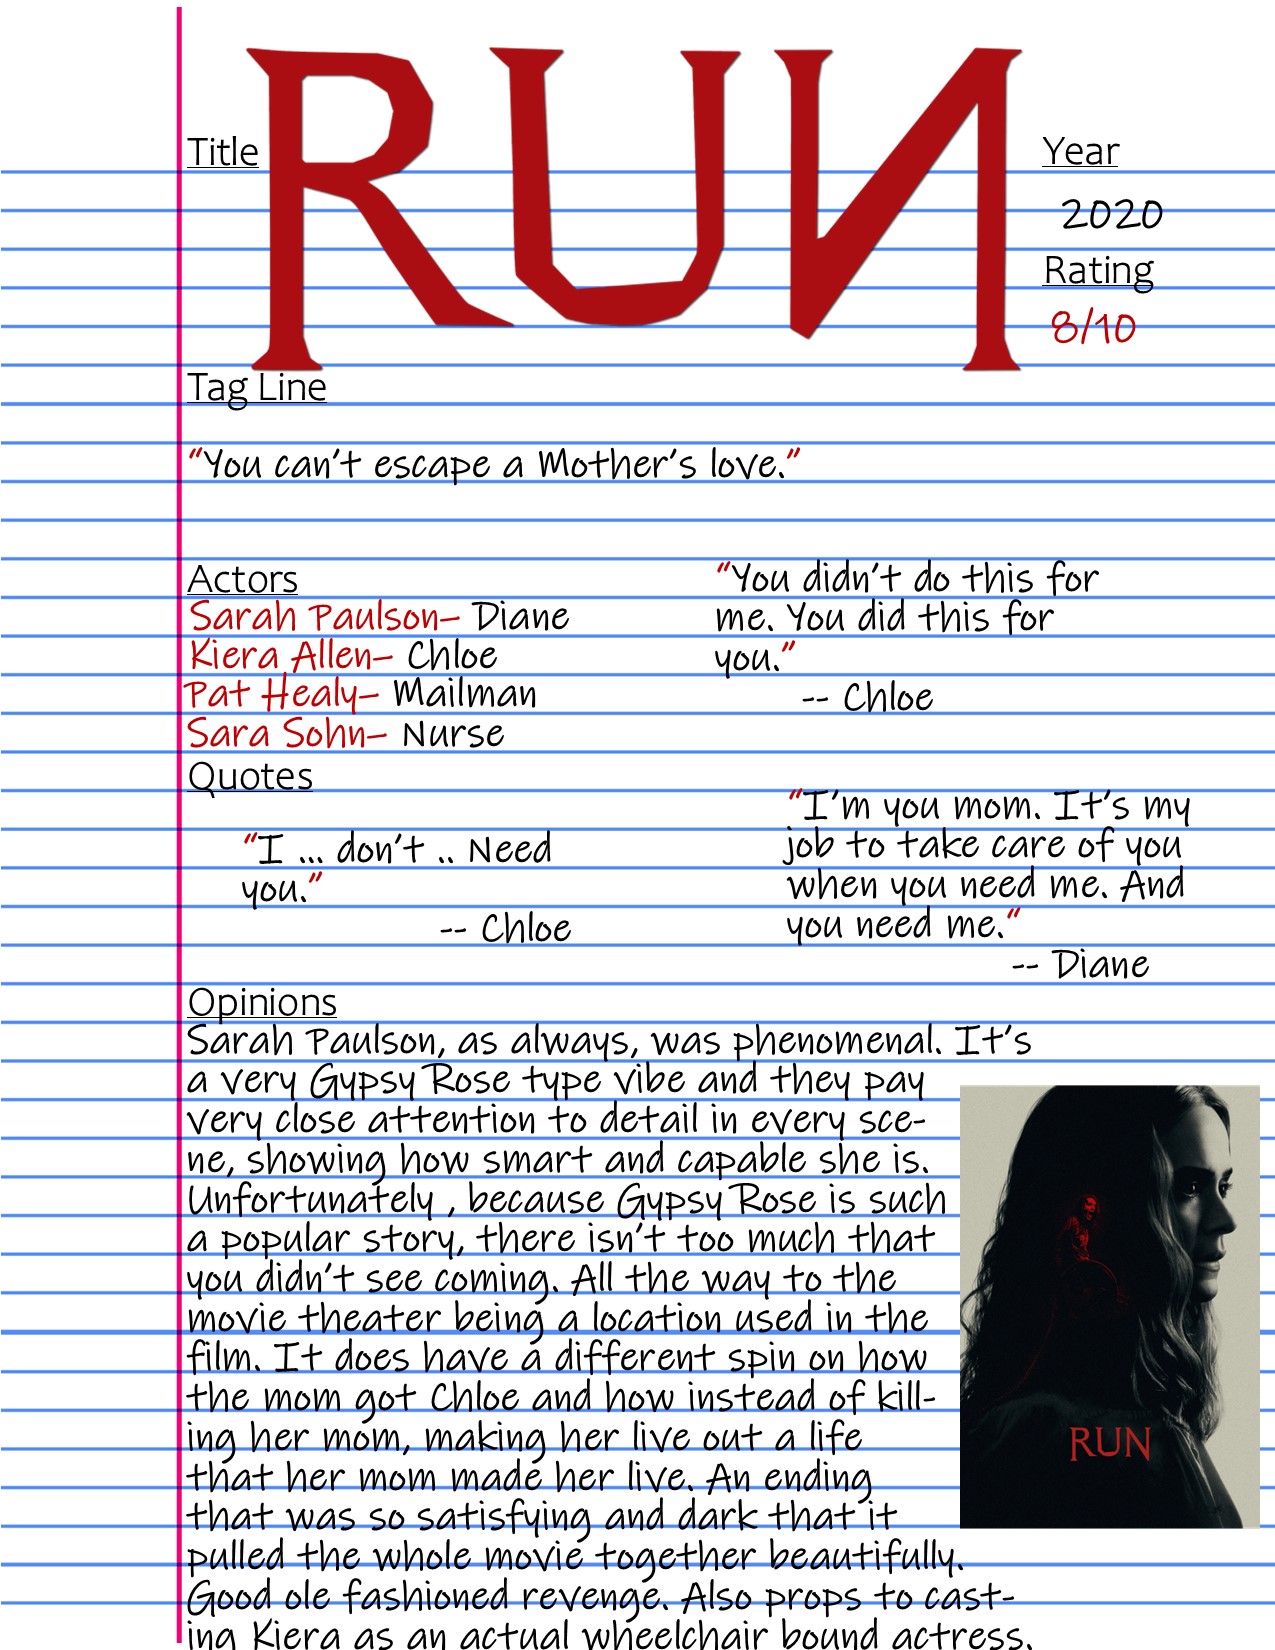 RUN
Title
Year
2020
Rating
8/10
Tag Line
"You can't escape a Mother's love."
Actors
Sarah Paulson– Diane
Kiera Allen– Chloe
Pat Healy– Mailman
Sara Sohn– Nurse
"You didn't do this for
me. You did this for
you."
-- Chloe
Quotes
"I ... don't .. Need
you."
-- Chloe
"I'm you mom. It's my
job to take care of you
when you need me. And
you need me."
-- Diane
Opinions
Sarah Paulson, as always, was phenomenal. It's
a very Gypsy Rose type vibe and they pay
very close attention to detail in every sce-
ne, showing how smart and capable she is.
Unfortunately , because Gypsy Rose is such
a popular story, there isn't too much that
you didn't see coming. All the way to the
movie theater being a location used in the
film. It does have a different spin on how
the mom got Chloe and how instead of kill-
ing her mom, making her live out a life
that her mom made her live. An ending
that was so satisfying and dark that it
pulled the whole movie together beautifully.
Good ole fashioned revenge. Also props to cast-
ing Kiera as an actual wheelchair bound actress.
RUN